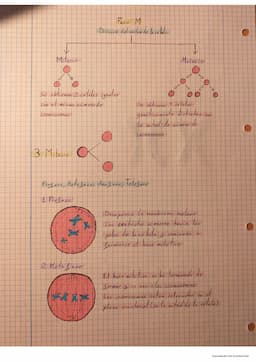 Fase M
División del núcleo de la célula
Mitosis
Meiosis
Se obtienen 2 células iguales
con el mismo número de
cromosomas
Se obtienen 4 células
genéticamente distintas con
la mitad de número de
cromosomas
3. Mitosis
Profase, Metafase, Anafase, Telofase
1. Profase
Desaparece la membrana nuclear
los centriolos
polos de la célula y comienza a
formarse el huso mitótico
2. Metafase
El huso mitótico se ha terminado de
formar y
los cromosomas están colocados en el
plano ecuatorial en la mitad de la célula